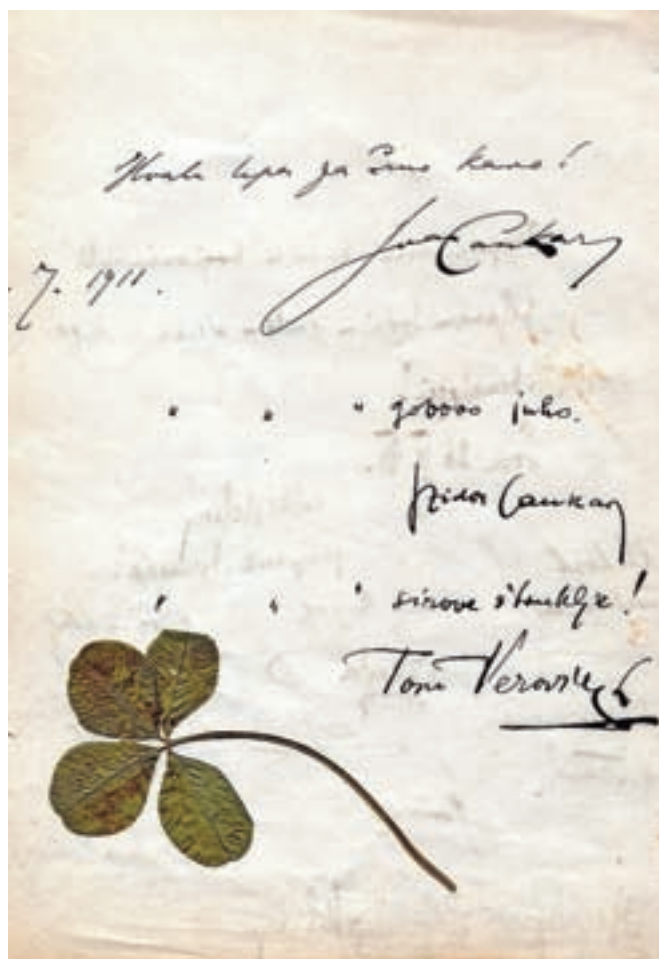 Hvala lepa za črno kavo!
Ivan Cankar
. 7. 1911.
" " " gobovo juho.
Izidor Cankar
" " " sirove štruklje!
Toni Verovšek